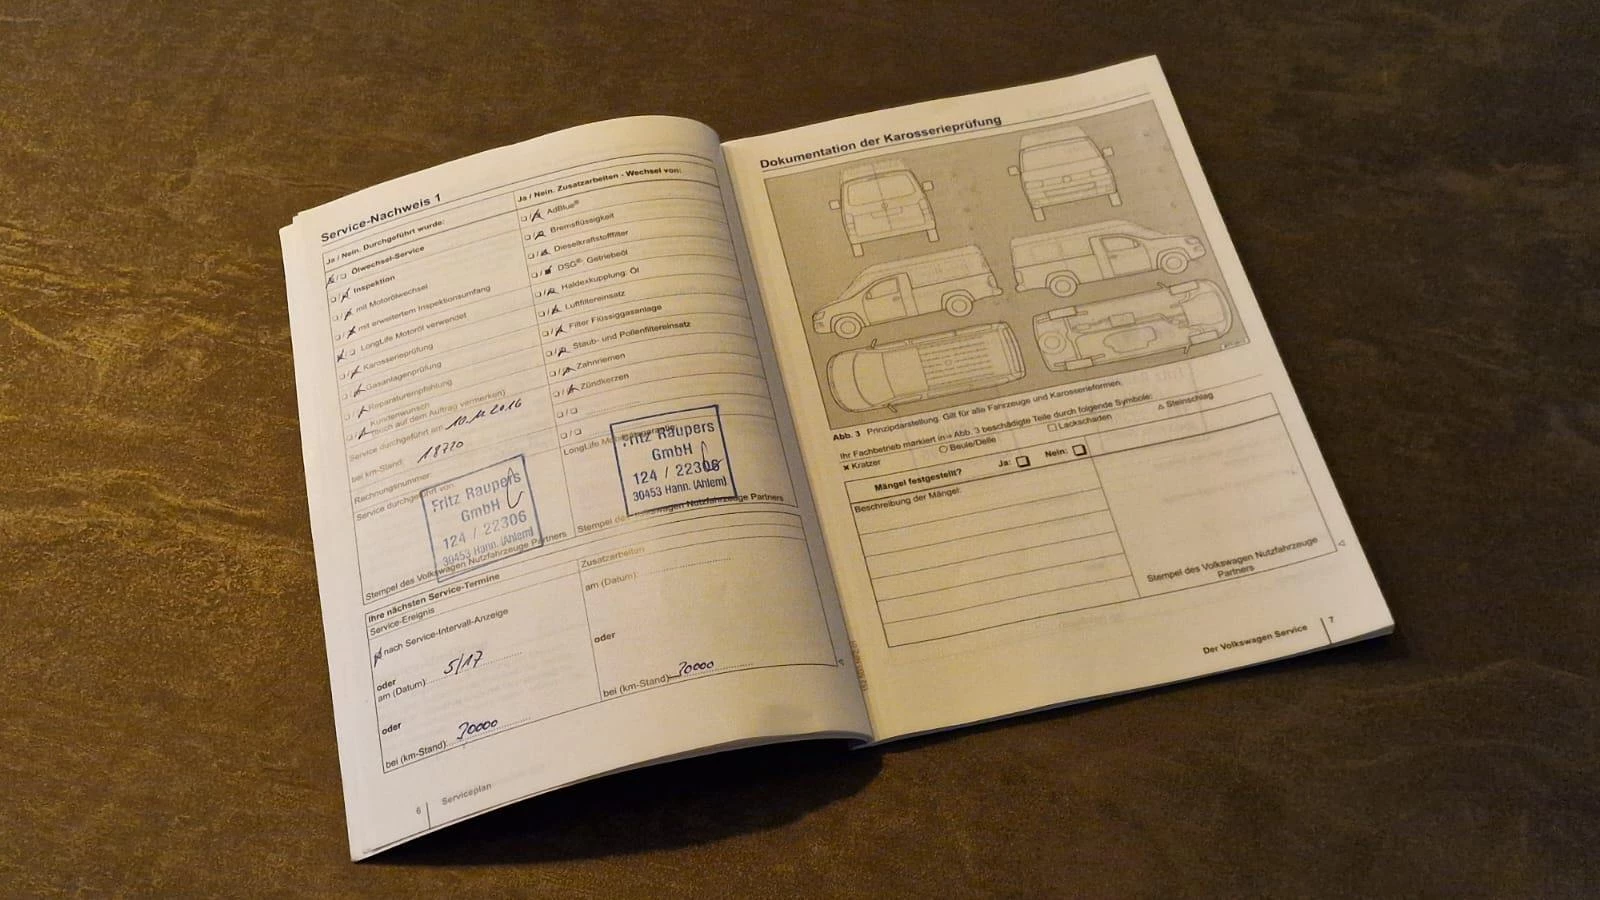 Service-Nachweis 1
Ja / Nein. Durchgeführt wurde:
Ölwechsel-Service
Inspektion
mit Motorölwechsel
mit erweitertem Inspektionsumfang
LongLife Motoröl verwendet
Karosserieprüfung
Gasanlagenprüfung
Reparaturempfehlung
Kundenwunsch
(auch auf dem Auftrag vermerken)
Service durchgeführt am:
bei km-Stand: 18720
Rechnungsnummer:
Service durchgeführt von:
Fritz Raupers
GmbH
124 / 22306
30453 Hann. (Ahlem)
Stempel des Volkswagen Nutzfahrzeuge Partners
Ja / Nein. Zusatzarbeiten - Wechsel von:
AdBlue®
Bremsflüssigkeit
Dieselkraftstofffilter
DSG®- Getriebeöl
Haldexkupplung: Öl
Luftfiltereinsatz
Filter Flüssiggasanlage
Staub- und Pollenfiltereinsatz
Zahnriemen
Zündkerzen
LongLife Mobilitätsgarantie
Fritz Raupers
GmbH
124 / 22306
30453 Hann. (Ahlem)
Stempel des Volkswagen Nutzfahrzeuge Partners
Ihre nächsten Service-Termine
Service-Ereignis
nach Service-Intervall-Anzeige
oder
am (Datum): 5/17
oder
bei (km-Stand):
Zusatzarbeiten
am (Datum):
oder
bei (km-Stand):
6 Serviceplan
Dokumentation der Karosserieprüfung
Abb. 3 Prinzipdarstellung. Gilt für alle Fahrzeuge und Karosserieformen.
Ihr Fachbetrieb markiert in ⇒ Abb. 3 beschädigte Teile durch folgende Symbole:
× Kratzer ○ Beule/Delle □ Lackschaden △ Steinschlag
Mängel festgestellt? Ja: Nein:
Beschreibung der Mängel:
Stempel des Volkswagen Nutzfahrzeuge
Partners
Der Volkswagen Service 7